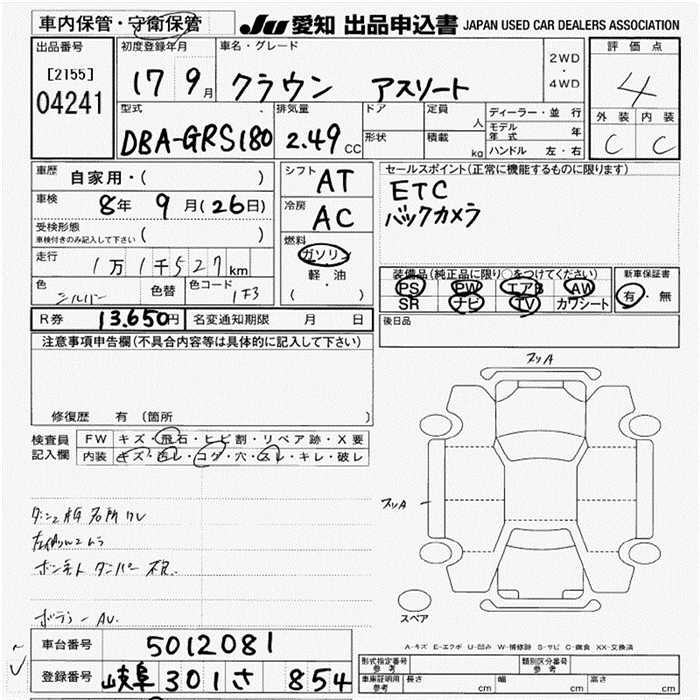 車内保管・守衛保管
JU 愛知 出品申込書 JAPAN USED CAR DEALERS ASSOCIATION
出品番号
[2155]
04241
初度登録年月
17 9月
車名・グレード
クラウン アスリート
2WD
・
4WD
評価点
4
外装 内装
C C
型式
DBA-GRS180
排気量
2.49CC
ドア
形状
定員
人
積載
kg
ディーラー・並行
モデル年式 年
ハンドル 左・右
車歴
自家用・( )
車検
8年 9月(26日)
受検形態
車検付きのみ記入して下さい ( )
走行
1万1千527km
色
シルバー
色替
色コード
1F3
シフト
AT
冷房
AC
燃料
ガソリン
軽油
( )
セールスポイント(正常に機能するものに限ります)
ETC
バックカメラ
装備品(純正品に限り○をつけてください)
PS PW エアB AW
SR ナビ TV カワシート
新車保証書
有・無
R券 13,650円
名変通知期限 月 日
後日品
注意事項申告欄(不具合内容等は具体的に記入して下さい)
修復歴 有 (箇所 )
検査員
記入欄
FW キズ・飛石・ヒビ割・リペア跡・X要
内装 キズ・汚レ・コゲ・穴・スレ・キレ・破レ
スペア
A-キズ E-エクボ U-凹み W-補修跡 S-サビ C-腐食 XX-交換済
車台番号 5012081
登録番号 岐阜 301 さ 854
形式指定番号
参考
類別区分番号
参考
車庫証明用
参考
長さ cm
幅 cm
高さ cm